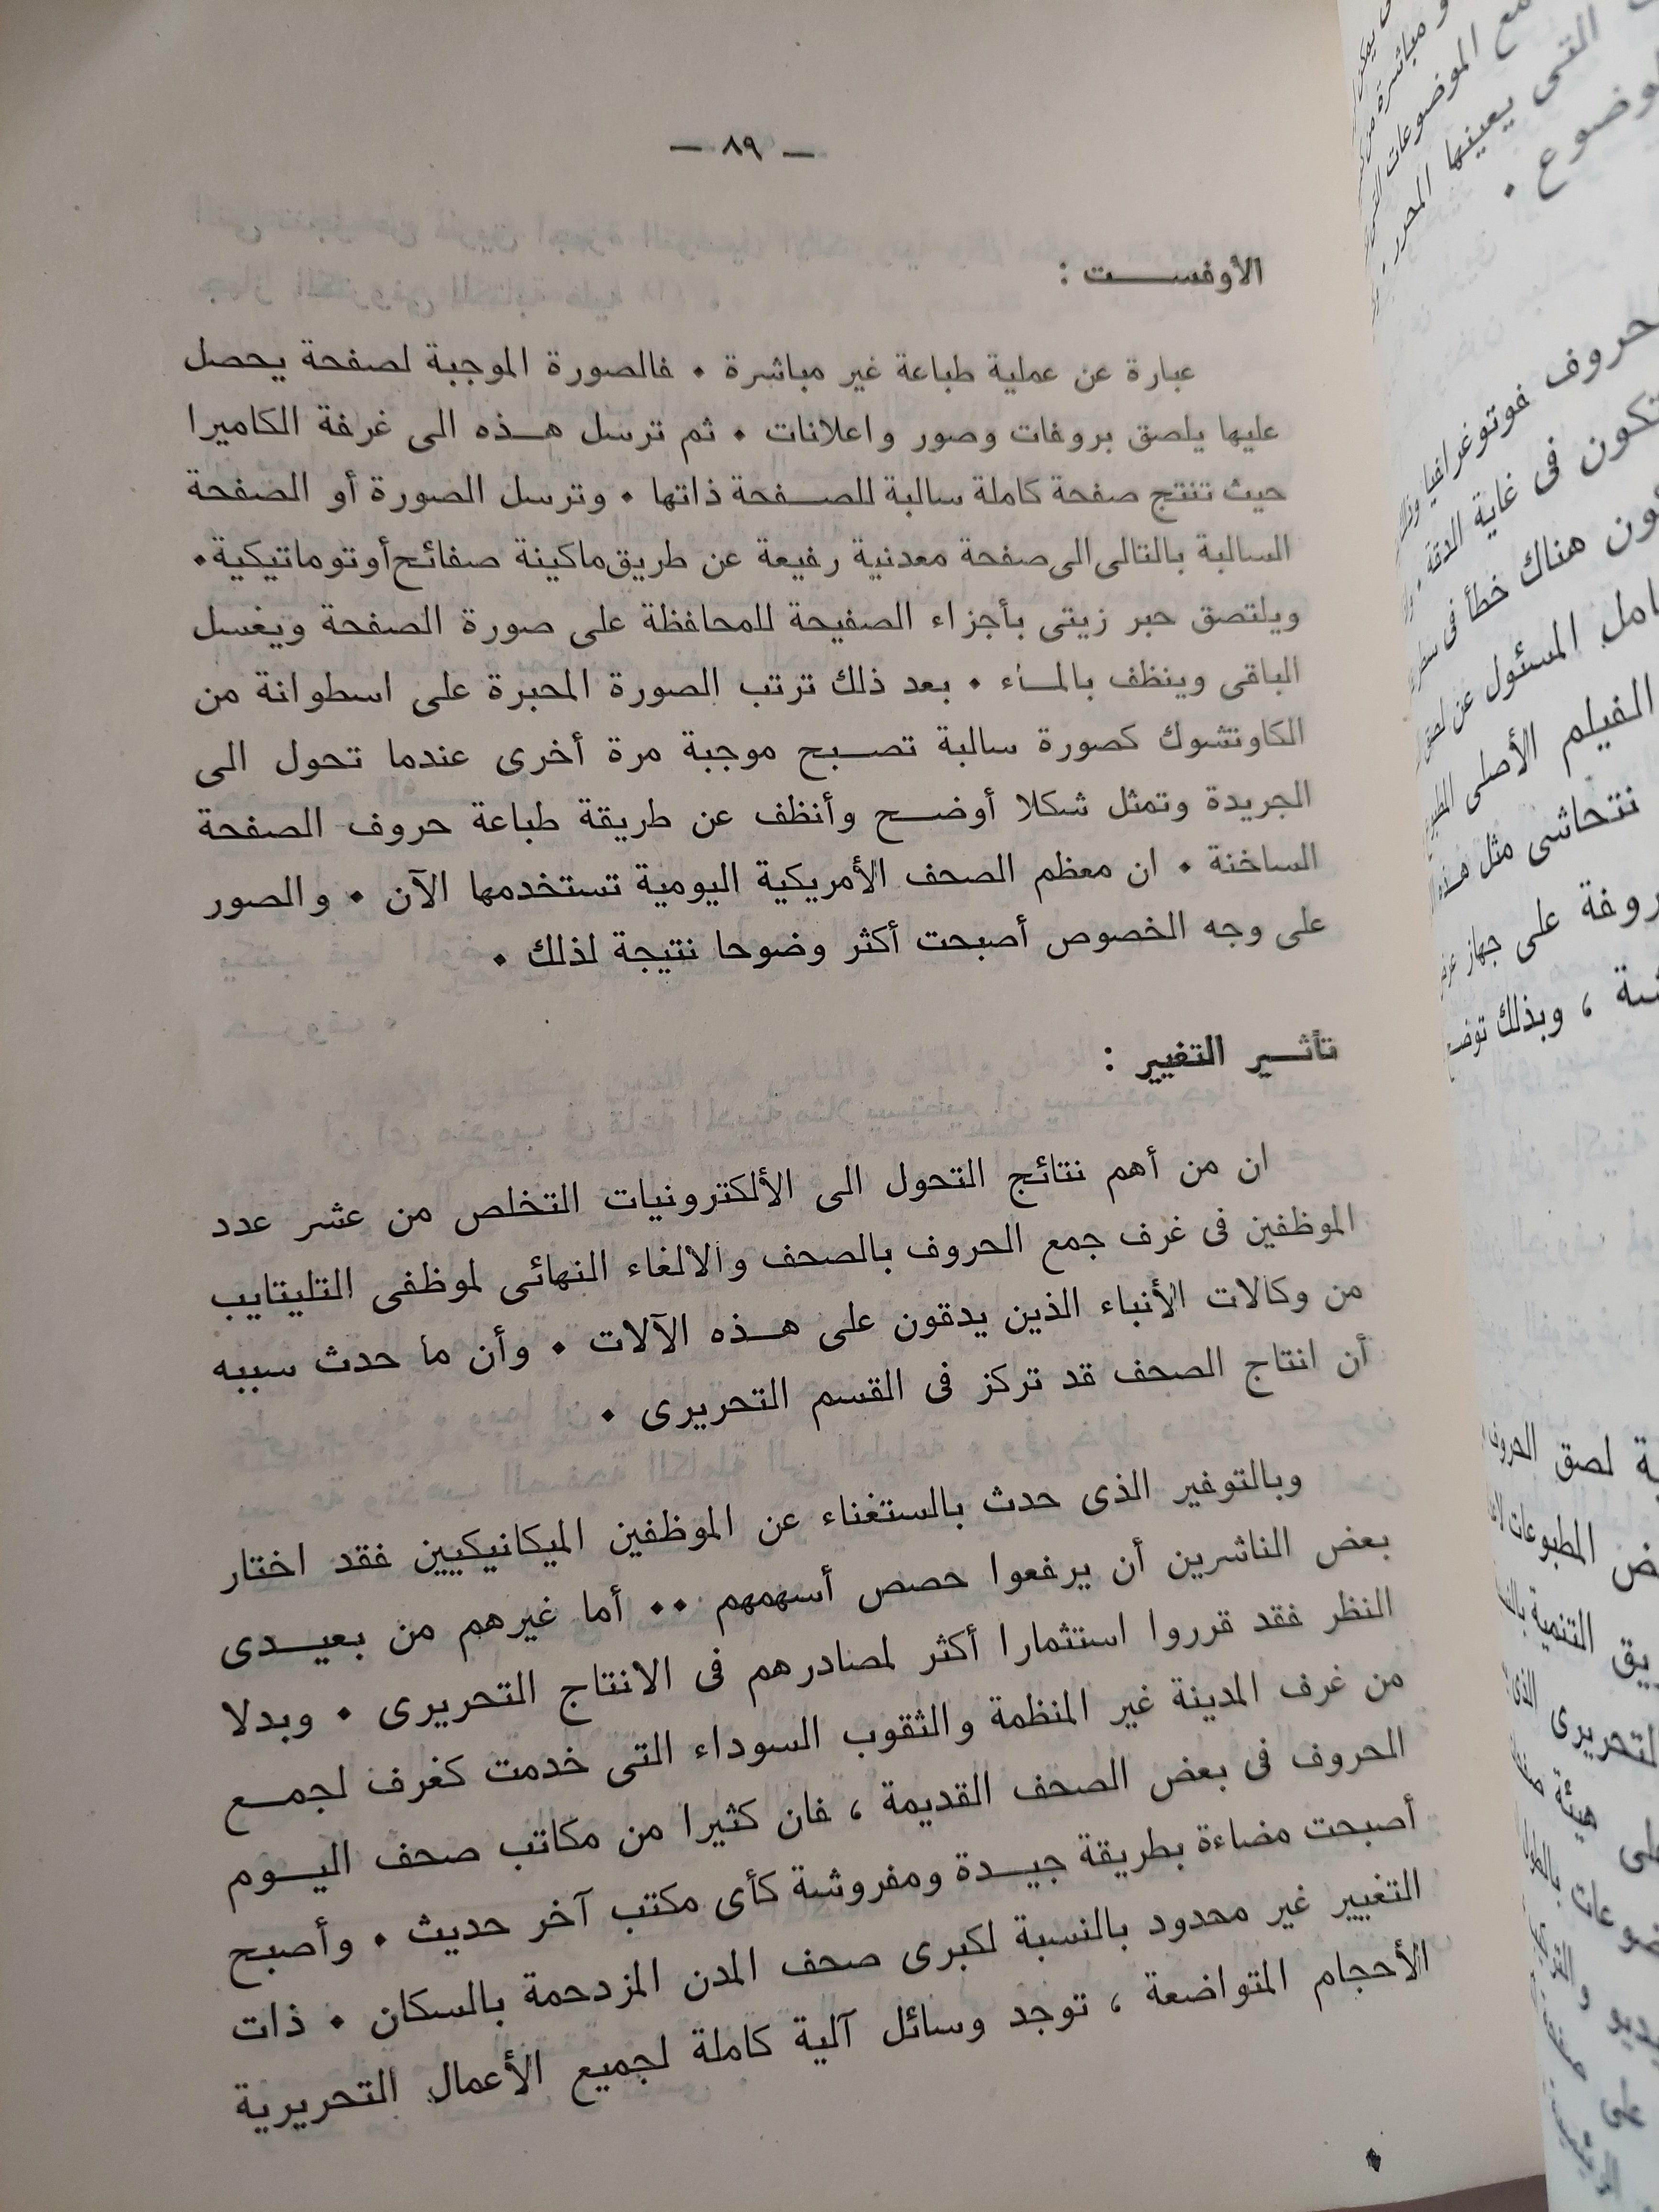 — ٨٩ —
الأوفست :
عبارة عن عملية طباعة غير مباشرة . فالصورة الموجبة لصفحة يحصل
عليها يلصق بروفات وصور واعلانات . ثم ترسل هذه الى غرفة الكاميرا
حيث تنتج صفحة كاملة سالبة للصفحة ذاتها . وترسل الصورة أو الصفحة
السالبة بالتالى الى صفحة معدنية رفيعة عن طريق ماكينة صفائح أوتوماتيكية .
ويلتصق حبر زيتى بأجزاء الصفيحة للمحافظة على صورة الصفحة ويغسل
الباقى وينظف بالماء . بعد ذلك ترتب الصورة المحبرة على اسطوانة من
الكاوتشوك كصورة سالبة تصبح موجبة مرة أخرى عندما تحول الى
الجريدة وتمثل شكلا أوضح وأنظف عن طريقة طباعة حروف الصفحة
الساخنة . ان معظم الصحف الأمريكية اليومية تستخدمها الآن . والصور
على وجه الخصوص أصبحت أكثر وضوحا نتيجة لذلك .
تأثير التغيير :
ان من أهم نتائج التحول الى الألكترونيات التخلص من عشر عدد
الموظفين فى غرف جمع الحروف بالصحف والالغاء النهائى لموظفى التليتايب
من وكالات الأنباء الذين يدقون على هذه الآلات . وأن ما حدث سببه
أن انتاج الصحف قد تركز فى القسم التحريرى .
وبالتوفير الذى حدث بالستغناء عن الموظفين الميكانيكيين فقد اختار
بعض الناشرين أن يرفعوا حصص أسهمهم .. أما غيرهم من بعيدى
النظر فقد قرروا استثمارا أكثر لمصادرهم فى الانتاج التحريرى . وبدلا
من غرف المدينة غير المنظمة والثقوب السوداء التى خدمت كغرف لجمع
الحروف فى بعض الصحف القديمة ، فان كثيرا من مكاتب صحف اليوم
أصبحت مضاءة بطريقة جيدة ومفروشة كأى مكتب آخر حديث . وأصبح
التغيير غير محدود بالنسبة لكبرى صحف المدن المزدحمة بالسكان . ذات
الأحجام المتواضعة ، توجد وسائل آلية كاملة لجميع الأعمال التحريرية
مع الموضوعات
التى يعينها المحرر
حروف فوتوغرافيا
تكون فى غاية الدقة
هناك خطأ فى
المسئول عن لصق
الفيلم الأصلى
نتحاشى مثل هذه
على جهاز
، وبذلك
لصق الحروف
المطبوعات
التنمية
التحريرى الذى
هيئة